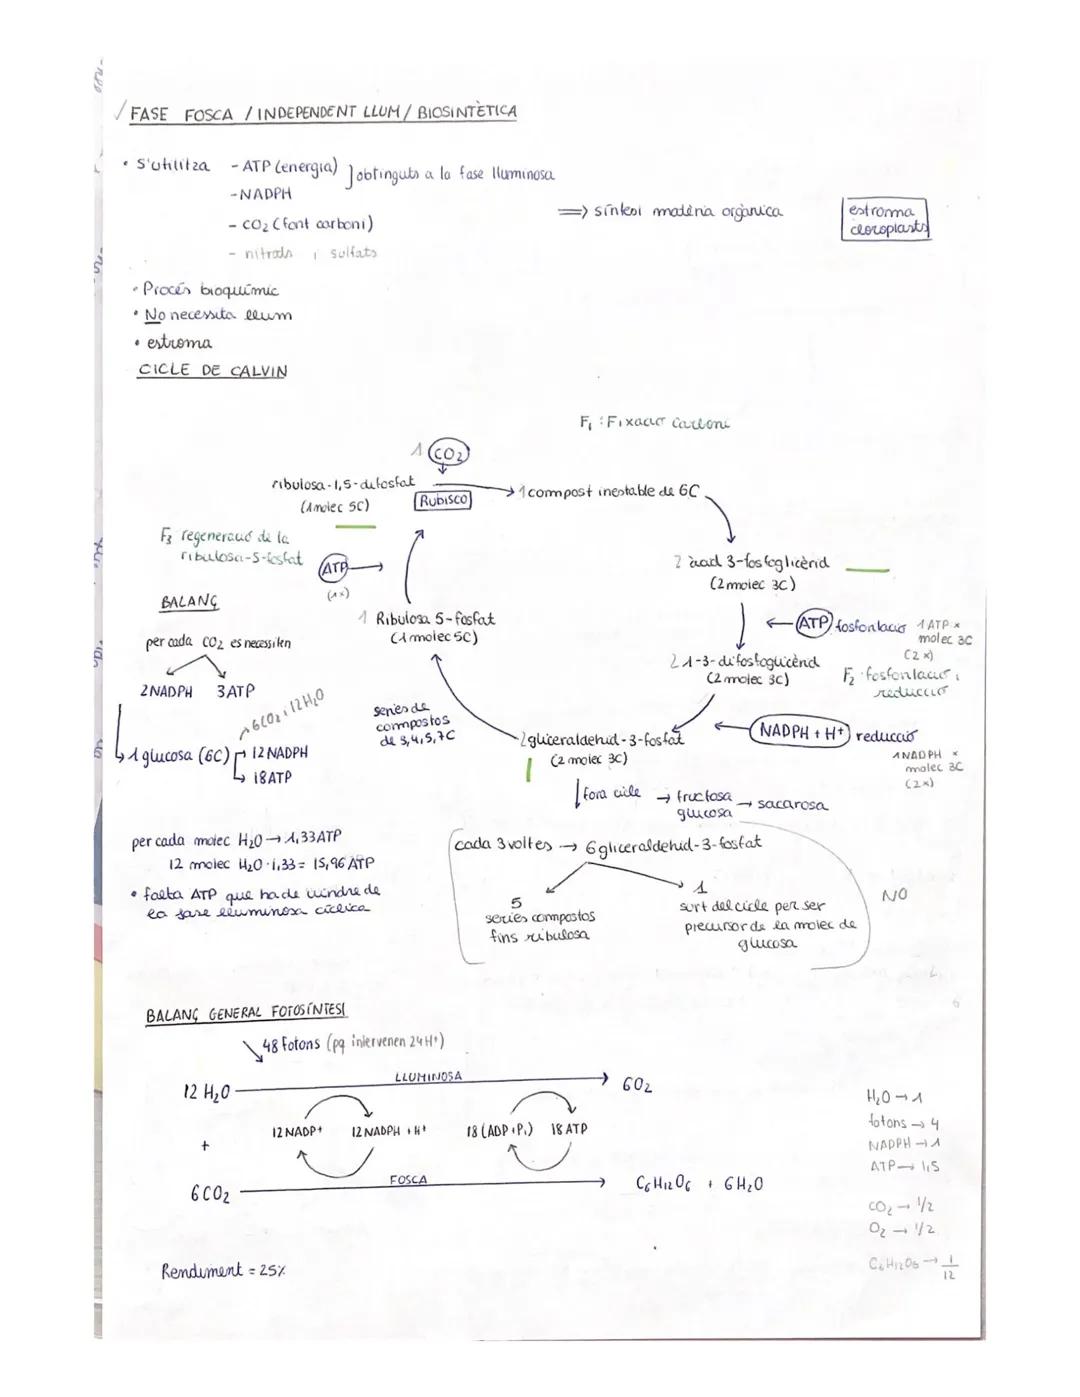 FASE FOSCA / INDEPENDENT LLUM / BIOSINTÈTICA
• S'utilitza - ATP (energia) ] obtinguts a la fase lluminosa
- NADPH
- CO2 (font carboni)
- nitrats i sulfats
=> síntesi matèria orgànica
estroma
cloroplasts
• Procés bioquímic
• No necessita llum
• estroma
CICLE DE CALVIN
F1: Fixació carboni
1 CO2
ribulosa-1,5-difosfat
(1 molec 5C)
Rubisco
1 compost inestable de 6C
F3 regeneració de la
ribulosa-5-fosfat
ATP
(1x)
2 àcid 3-fosfoglicèrid
(2 molec 3C)
BALANÇ
1 Ribulosa 5-fosfat
(1 molec 5C)
ATP fosforilació 1 ATP x
molec 3C
(2x)
per cada CO2 es necessiten
2 1-3-difosfoglicèrid
(2 molec 3C)
F2 fosforilació i
reducció
2NADPH 3ATP
6CO2 i 12H2O
series de
compostos
de 3,4,5,7C
NADPH + H+ reducció
1 NADPH x
molec 3C
(2x)
1 glucosa (6C) → 12 NADPH
↳ 18 ATP
2 gliceraldehid-3-fosfat
(2 molec 3C)
fora cicle → fructosa → sacarosa
glucosa
per cada molec H2O → 1,33 ATP
12 molec H2O · 1,33 = 15,96 ATP
• falta ATP que ha de vindre de
la fase lluminosa cíclica
cada 3 voltes → 6 gliceraldehid-3-fosfat
5
series compostos
fins ribulosa
1
surt del cicle per ser
precursor de la molec de
glucosa
NO
BALANÇ GENERAL FOTOSÍNTESI
48 fotons (pq intervenen 24H+)
12 H2O LLUMINOSA → 6O2
+ 12 NADP+ 12 NADPH + H+ 18 (ADP + Pi) 18 ATP
6CO2 FOSCA → C6H12O6 + 6H2O
Rendiment = 25%
H2O → 1
fotons → 4
NADPH → 1
ATP → 1,5
CO2 → 1/2
O2 → 1/2
C6H12O6 → 1/12